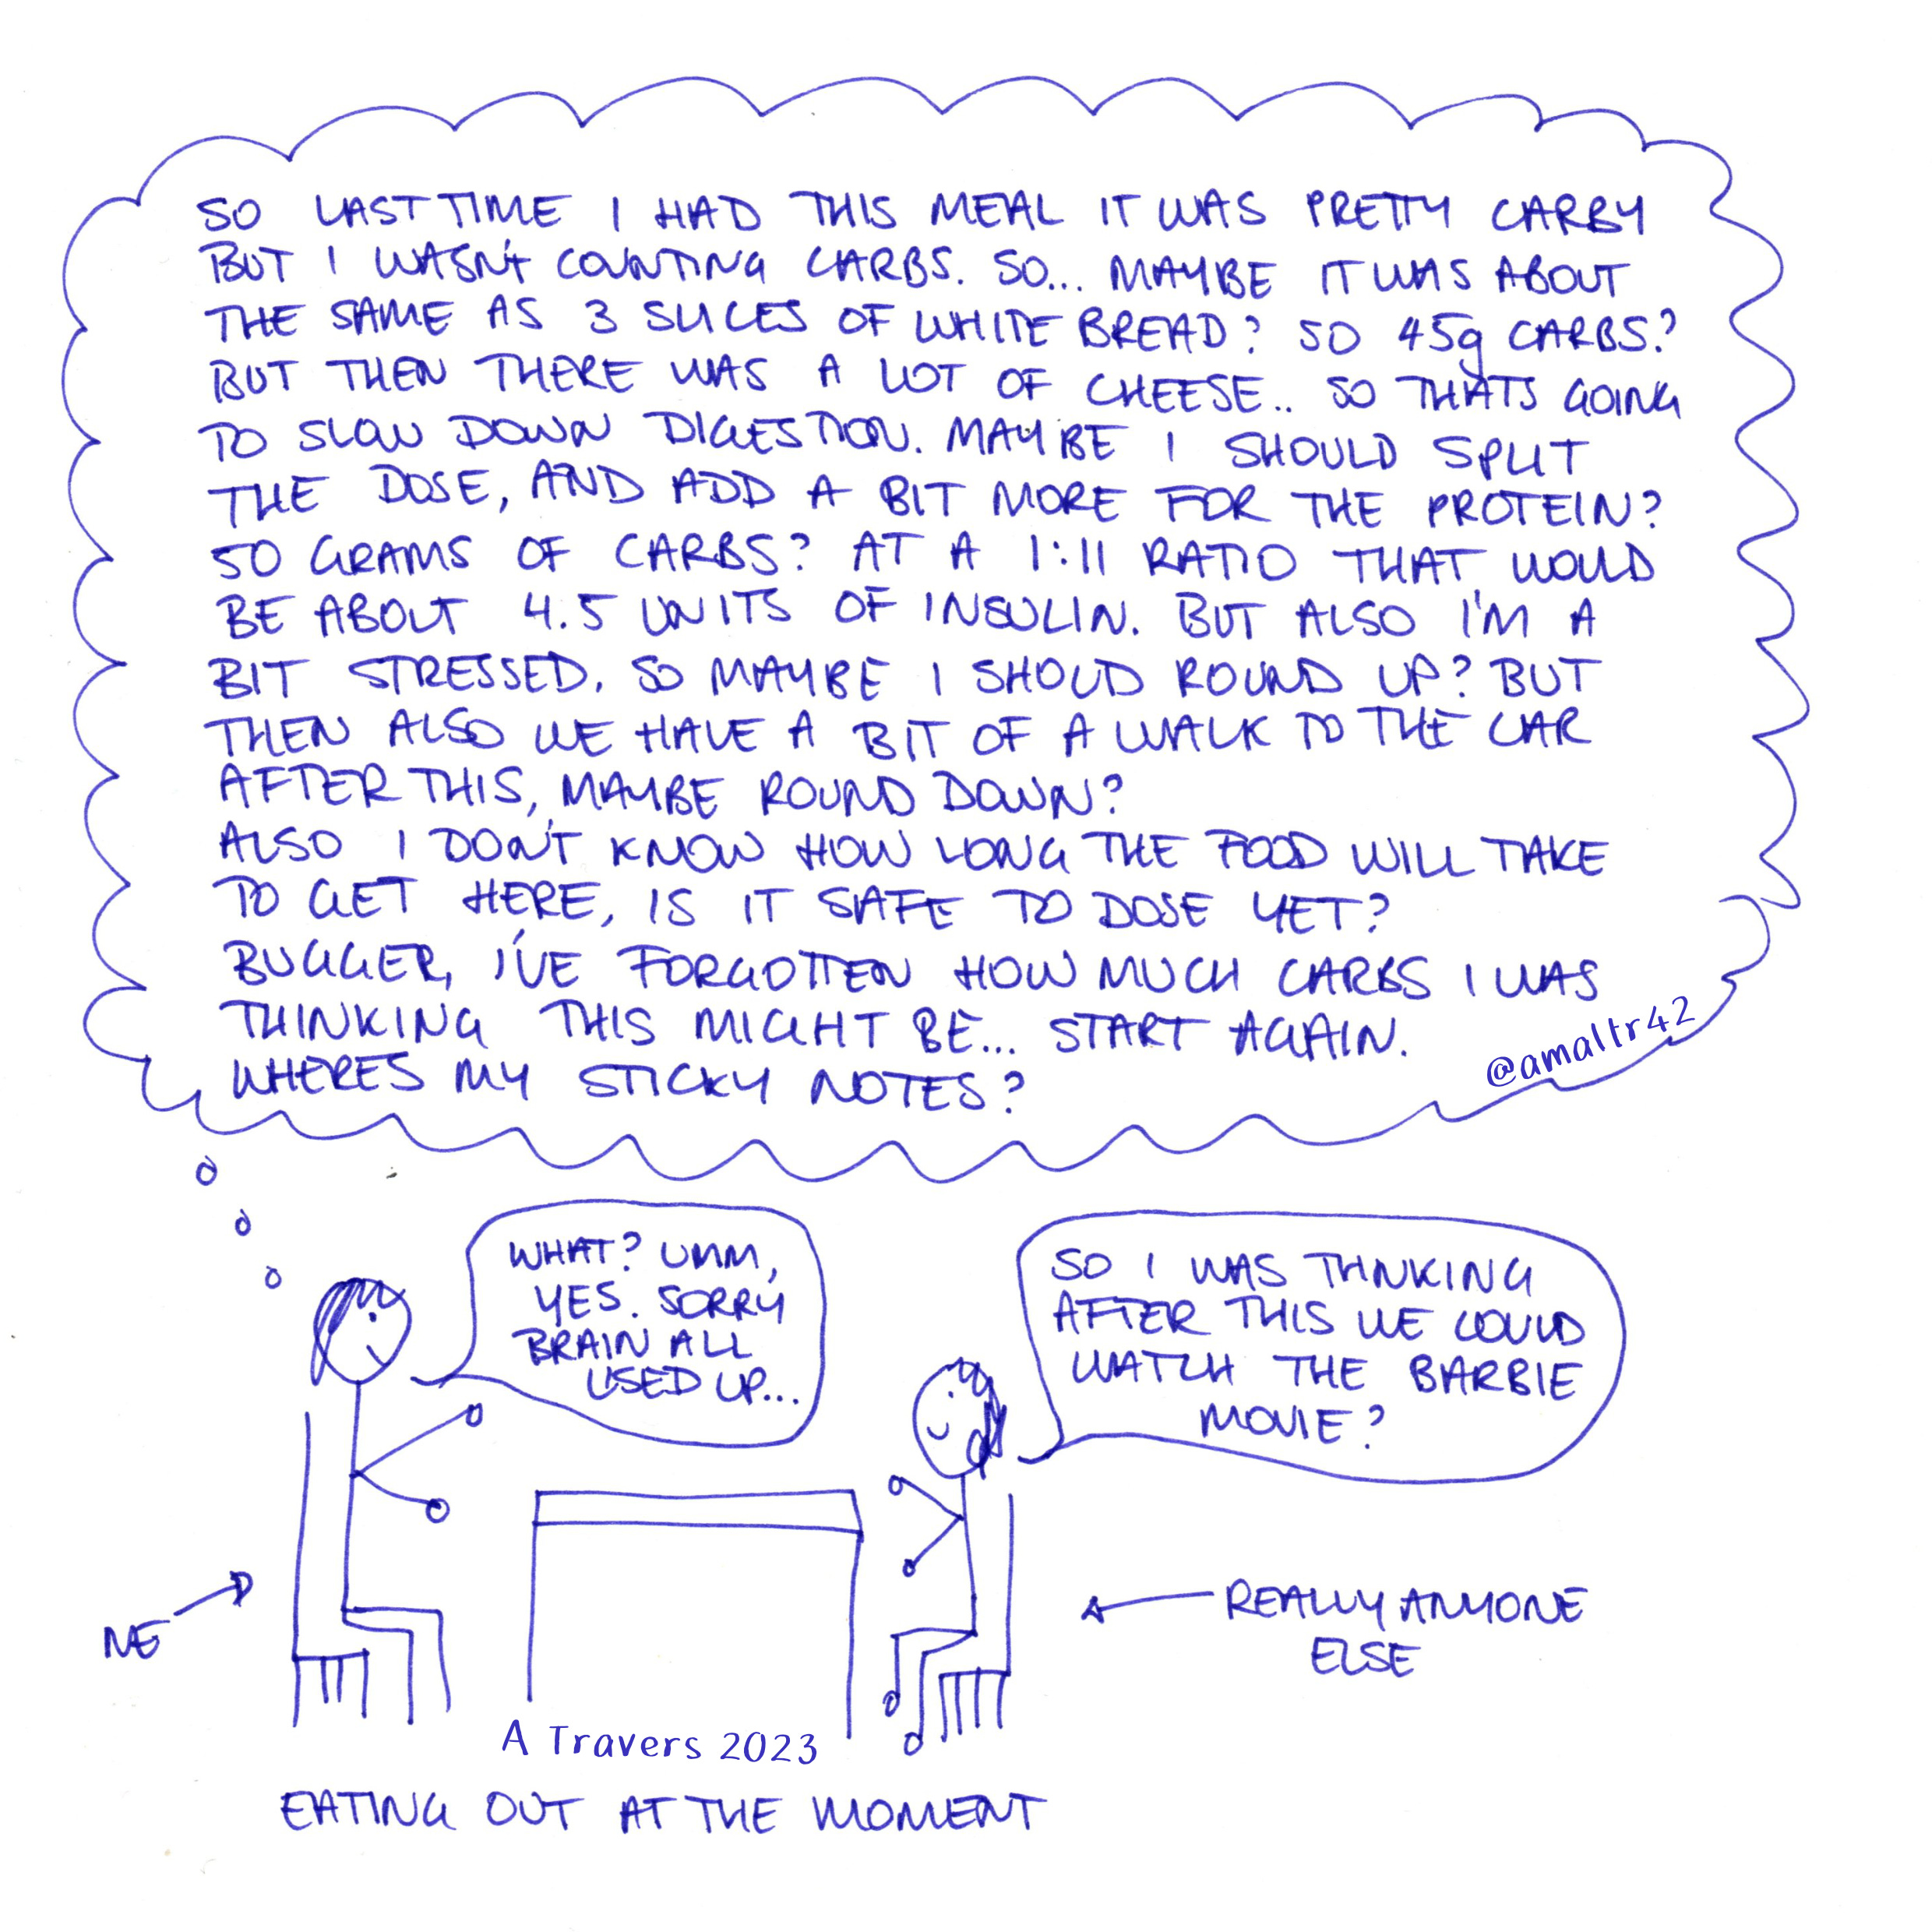 SO LAST TIME I HAD THIS MEAL IT WAS PRETTY CARBY
BUT I WASN'T COUNTING CARBS. SO... MAYBE IT WAS ABOUT
THE SAME AS 3 SLICES OF WHITE BREAD? SO 45g CARBS?
BUT THEN THERE WAS A LOT OF CHEESE.. SO THATS GOING
TO SLOW DOWN DIGESTION. MAYBE I SHOULD SPLIT
THE DOSE, AND ADD A BIT MORE FOR THE PROTEIN?
50 GRAMS OF CARBS? AT A 1:11 RATIO THAT WOULD
BE ABOUT 4.5 UNITS OF INSULIN. BUT ALSO I'M A
BIT STRESSED. SO MAYBE I SHOULD ROUND UP? BUT
THEN ALSO WE HAVE A BIT OF A WALK TO THE CAR
AFTER THIS, MAYBE ROUND DOWN?
ALSO I DON'T KNOW HOW LONG THE FOOD WILL TAKE
TO GET HERE, IS IT SAFE TO DOSE YET?
BUGGER, I'VE FORGOTTEN HOW MUCH CARBS I WAS
THINKING THIS MIGHT BE... START AGAIN.
WHERES MY STICKY NOTES?
@amaltr42
WHAT? UMM,
YES. SORRY
BRAIN ALL
USED UP...
SO I WAS THINKING
AFTER THIS WE COULD
WATCH THE BARBIE
MOVIE?
ME
REALLY ANYONE
ELSE
A Travers 2023
EATING OUT AT THE MOMENT